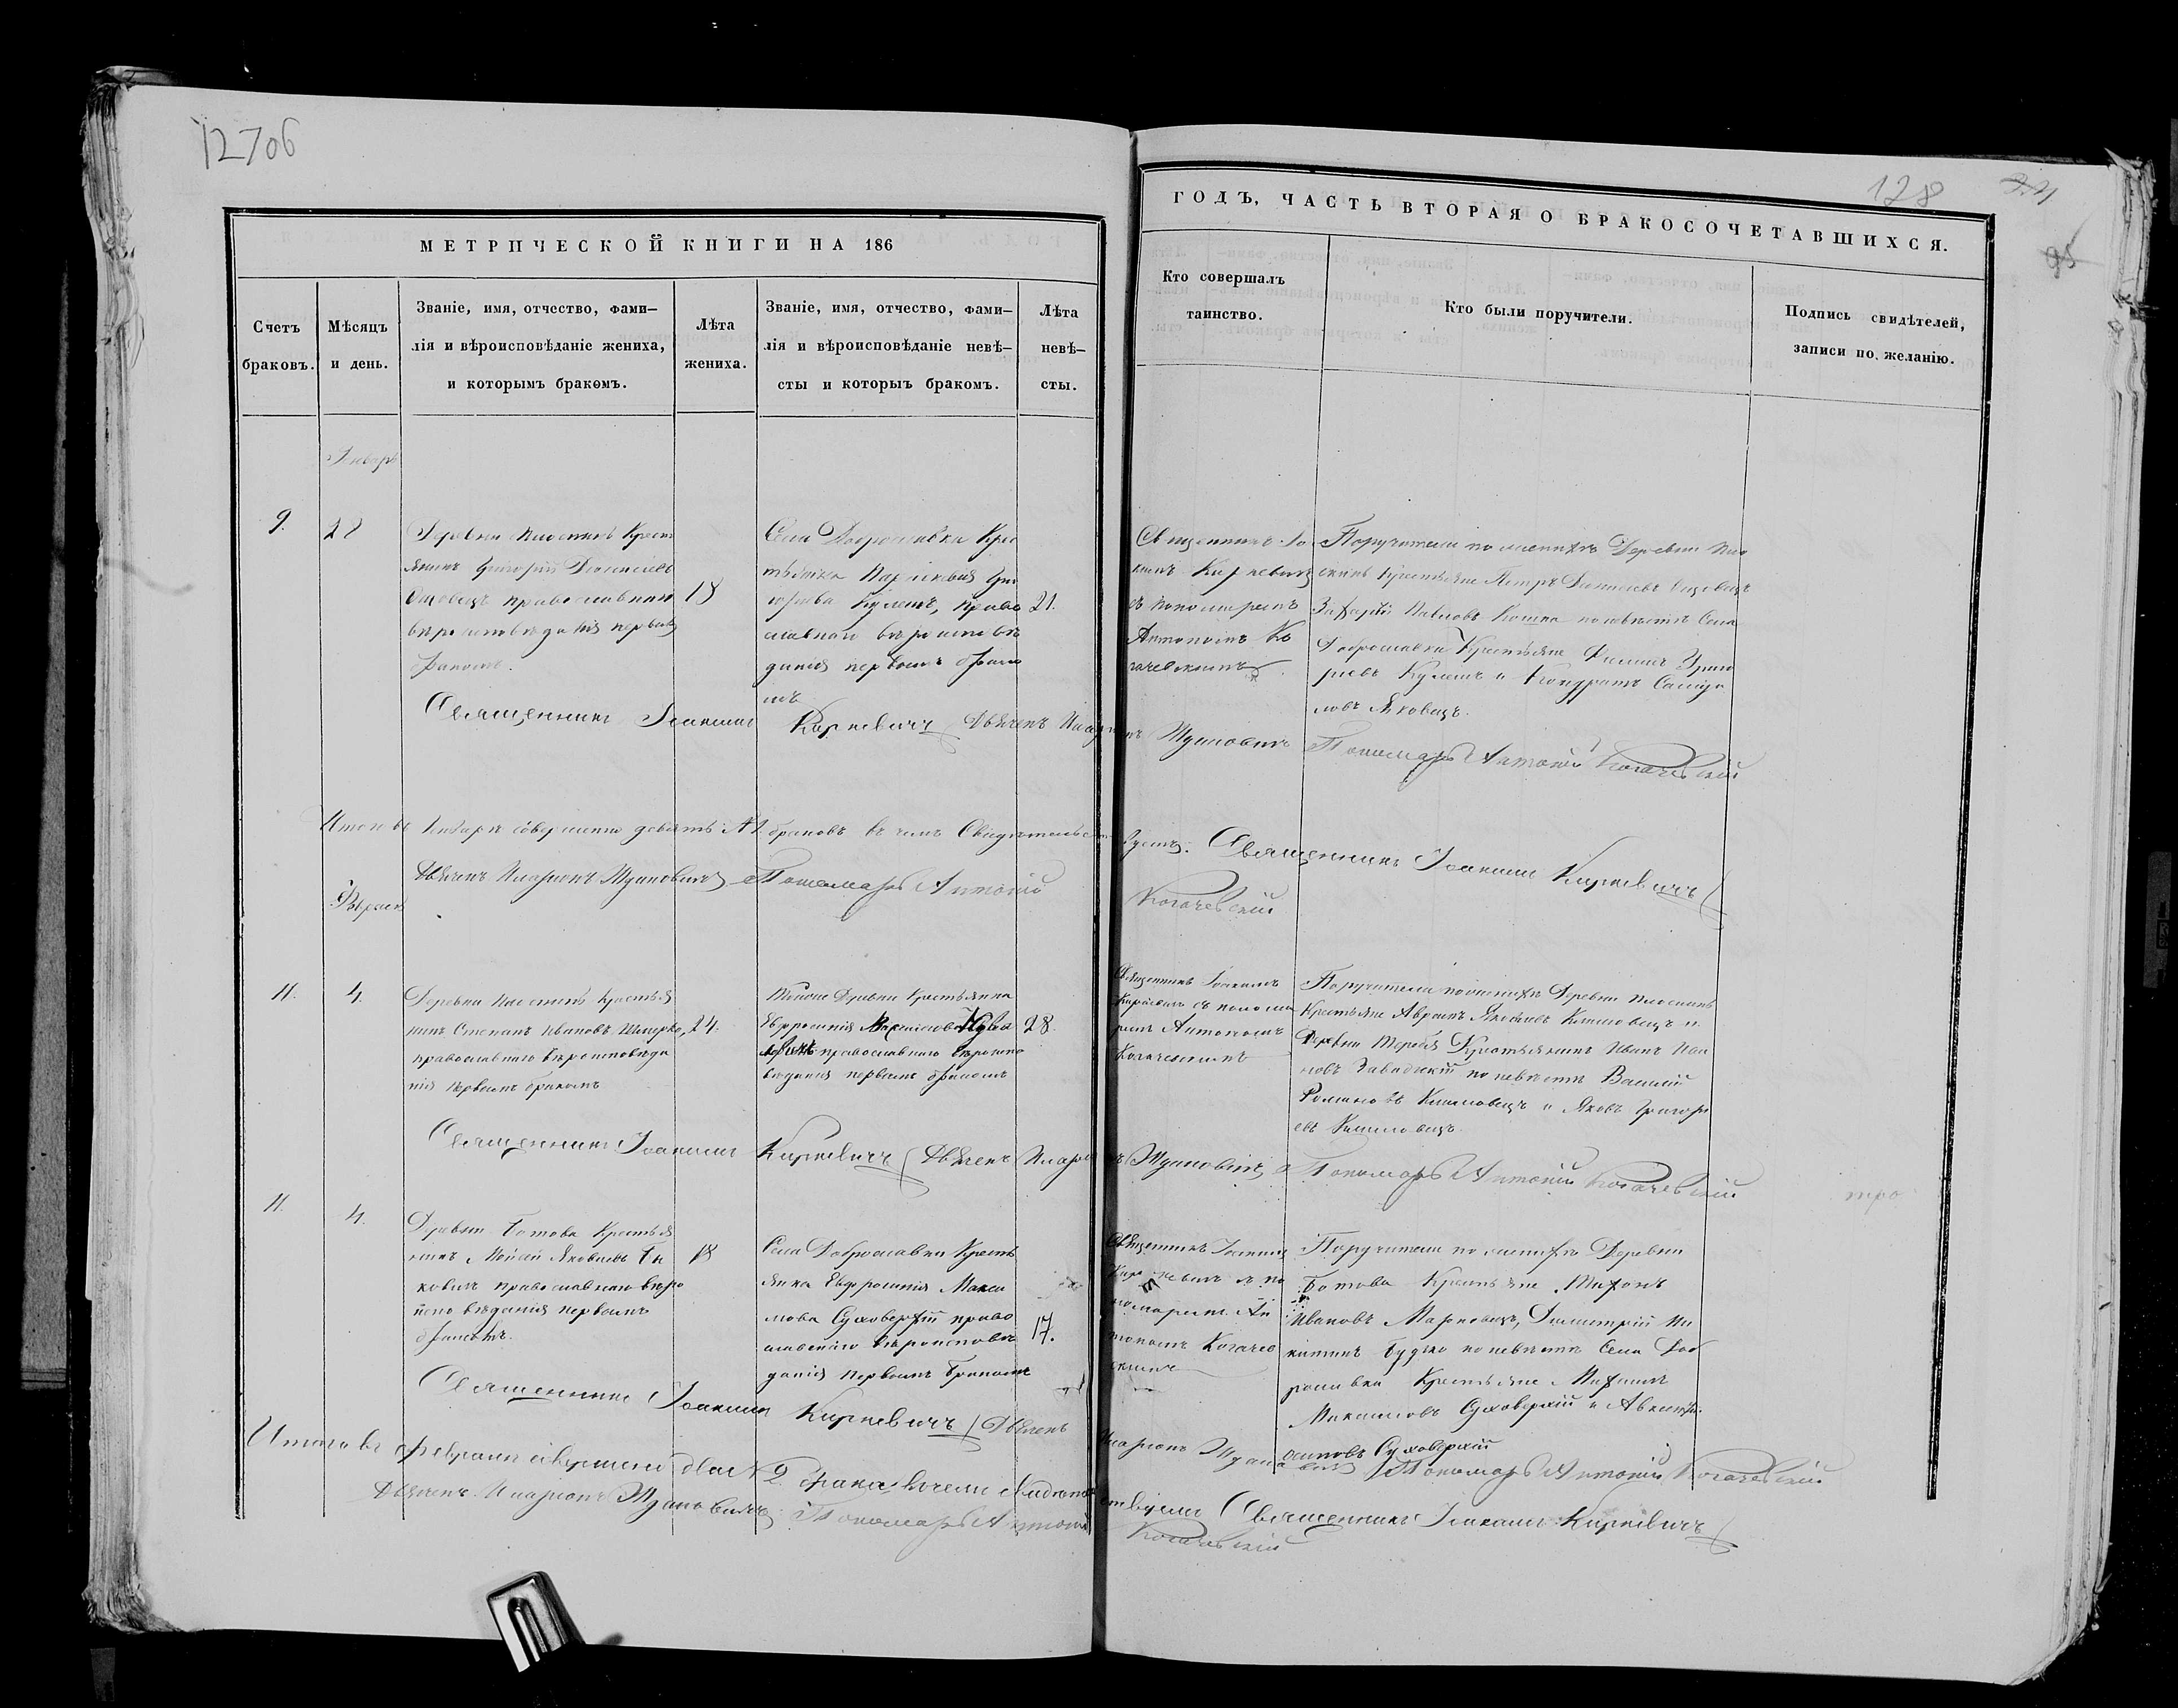 12706
МЕТРИЧЕСКОЙ КНИГИ НА 186
Счетъ браковъ.
Мѣсяцъ и день.
Званіе, имя, отчество, фами-
лія и вѣроисповѣданіе жениха,
и которымъ бракомъ.
Лѣта
жениха.
Званіе, имя, отчество, фами-
лія и вѣроисповѣданіе невѣ-
сты и которыъ бракомъ.
Лѣта
невѣ-
сты.
128
95
ГОДЪ, ЧАСТЬ ВТОРАЯ О БРАКОСОЧЕТАВШИХСЯ.
Кто совершалъ
таинство.
Кто были поручители.
Подпись свидѣтелей,
записи по желанію.
Январь
9.
28
Деревни Плоскинь Крест
янинъ Григорій
православнаго
вѣроисповѣданія первымъ
бракомъ.
18
Села Доброславки Крес
тьянка Григо
рьева Кулешъ, право
славнаго вѣроисповѣ
данія первымъ брако
мъ
21.
Священникъ Іо
акимъ Киркевичъ
съ пономаремъ
Антоніемъ Ко
гачевскимъ
Поручители по женихѣ Деревни Пло
скинь Крестьяне Петръ
Захарій Павловъ Кошка по невѣстѣ Села
Доброславки Крестьяне Филипъ Григо
рьевъ Кулешъ и Кондратъ Самуи
ловъ Яковецъ.
Священникъ Іоакимъ Киркевичъ Дьячекъ Иларіонъ Ждановичъ Пономарь Антоній Когачевскій
Итого въ Январѣ совершено девять № 9 браковъ въ чемъ Свидѣтельствуемъ. Священникъ Іоакимъ Киркевичъ
Дьячекъ Иларіонъ Ждановичъ Пономарь Антоній Когачевскій
Февраль
11.
4.
Деревни Плоскинь Крестья
нинъ Степанъ Ивановъ
православнаго вѣроисповѣда
нія первымъ бракомъ
24.
Тойже Деревни Крестьянка
Евфросинія
православнаго вѣроиспо
вѣданія первымъ бракомъ
28.
Священникъ Іоакимъ
Киркевичъ съ понома
ремъ Антоніемъ
Когачевскимъ
Поручители по женихѣ Деревни Плоскинь
Крестьяне Авраамъ Яковлевъ Климовецъ и
Деревни Крестьянинъ Иванъ
по невѣстѣ Василій
Романовъ Климовецъ и Яковъ Григорь
евъ Климовецъ.
Священникъ Іоакимъ Киркевичъ Дьячекъ Иларіонъ Ждановичъ Пономарь Антоній Когачевскій
11.
4.
Деревни Ботова Крестья
нинъ Мойсей Яковлевъ
православнаго вѣро
исповѣданія первымъ
бракомъ.
18
Села Доброславки Кресть
янка Евфросинія Макси
мова Суховерхій право
славнаго вѣроисповѣ
данія первымъ бракомъ
17.
Священникъ Іоакимъ
Киркевичъ съ по
номаремъ Ан
тоніемъ Когачев
скимъ
Поручители по женихѣ Деревни
Ботова Крестьяне
Ивановъ Марковецъ, Димитрій Ни
китинъ Будко по невѣстѣ Села Доб
рославки Крестьяне
Максимовъ Суховерхій и
Осиповъ Суховерхій
Священникъ Іоакимъ Киркевичъ Дьячекъ Иларіонъ Ждановичъ Пономарь Антоній Когачевскій
Итого въ Февралѣ совершено два № 2 брака въ чемъ свидѣтельствуемъ Священникъ Іоакимъ Киркевичъ
Дьячекъ Иларіонъ Ждановичъ Пономарь Антоній Когачевскій